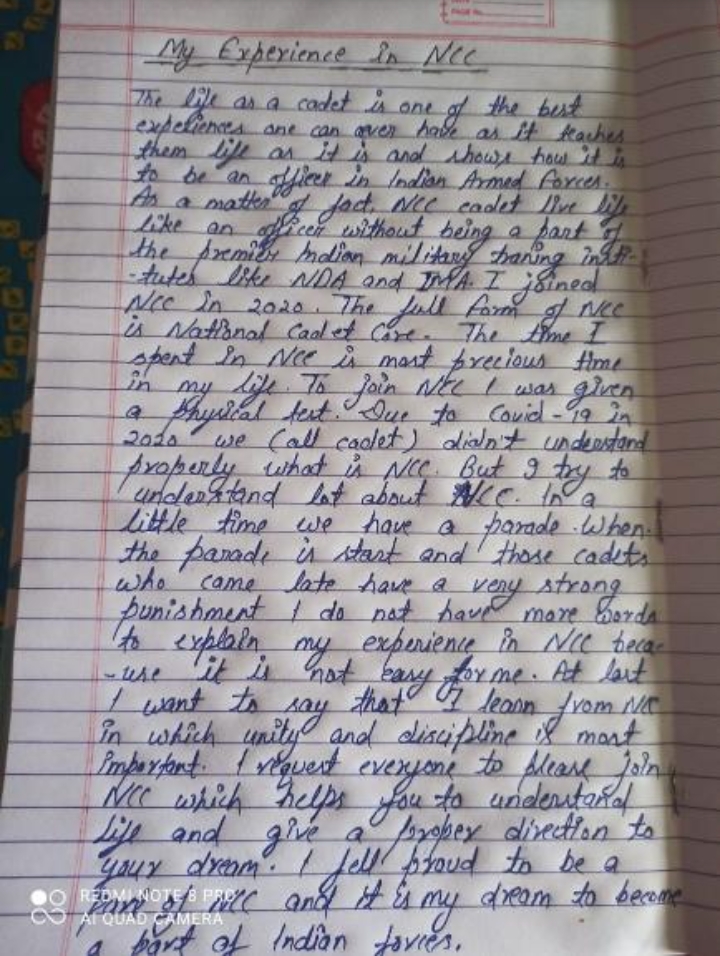 My Experience In NCC
The life as a cadet is one of the best
experiences one can ever have as it teaches
them life as it is and shows how it is
to be an officer in Indian Armed forces.
As a matter of fact, NCC cadet live life
like an officer without being a part of
the premier Indian military traning insti-
-tutes like NDA and IMA. I joined
NCC in 2020. The full form of NCC
is National Cadet Core. The time I
spent in NCC is most precious time
in my life. To join NCC I was given
a physical test. Due to Covid-19 in
2020 we (all cadet) didn't understand
properly what is NCC. But I try to
understand lot about NCC. In a
little time we have a parade. When
the parade is start and those cadets
who came late have a very strong
punishment I do not have more words
to explain my experience in NCC beca-
-use it is not easy for me. At last
I want to say that I learn from NCC
in which unity and discipline is most
important. I request everyone to please join
NCC which helps you to understand
life and give a proper direction to
your dream. I fell proud to be a
NCC and it is my dream to become
a part of Indian forces.
REDMI NOTE 8 PRO
AI QUAD CAMERA